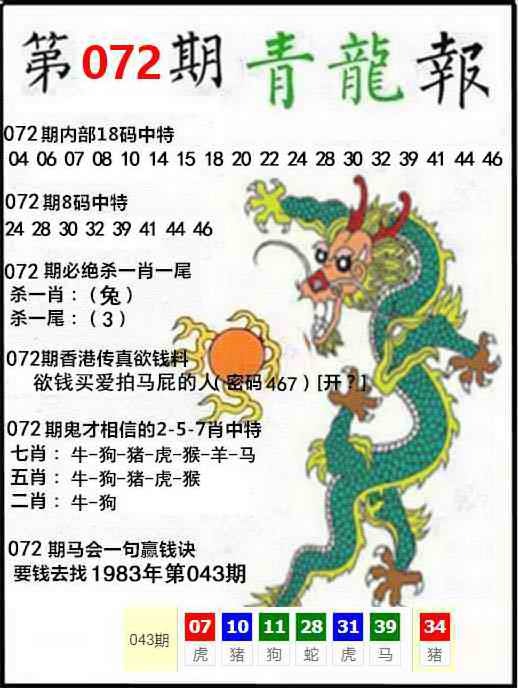 第072期青龍報
072期内部18码中特
04 06 07 08 10 14 15 18 20 22 24 28 30 32 39 41 44 46
072期8码中特
24 28 30 32 39 41 44 46
072期必绝杀一肖一尾
杀一肖：（兔）
杀一尾：（3）
072期香港传真欲钱料
欲钱买爱拍马屁的人(密码467)[开？]
072期鬼才相信的2-5-7肖中特
七肖：牛-狗-猪-虎-猴-羊-马
五肖：牛-狗-猪-虎-猴
二肖：牛-狗
072期马会一句赢钱诀
要钱去找1983年第043期
043期 07 10 11 28 31 39 34
虎 猪 狗 蛇 虎 马 猪